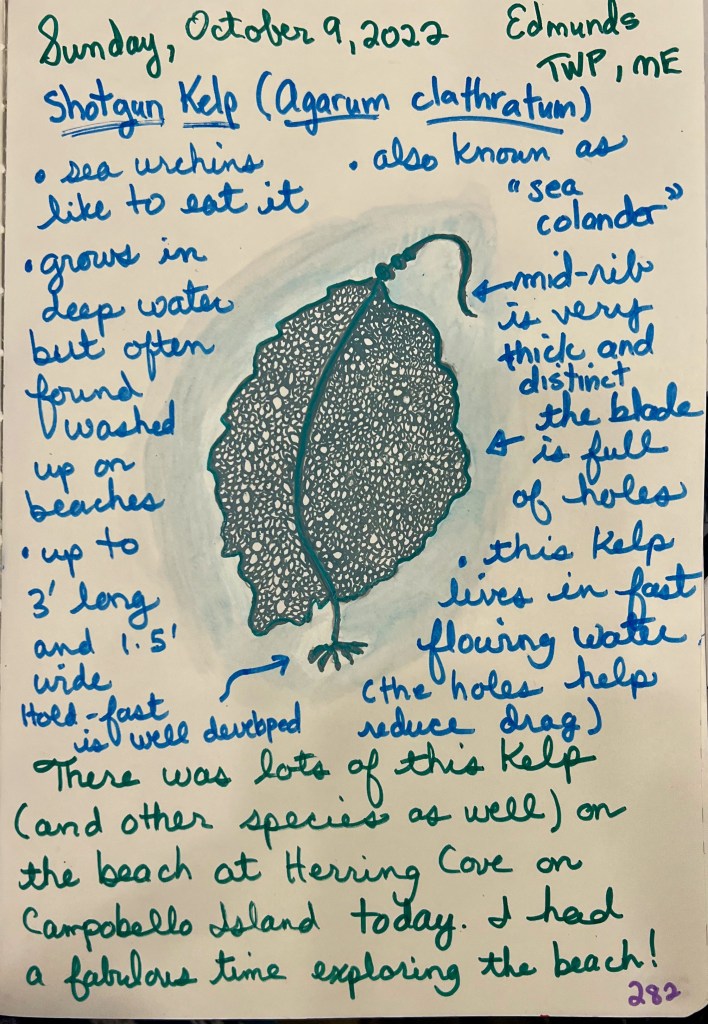 Sunday, October 9, 2022
Edmunds
TWP, ME
Shotgun Kelp (Agarum clathratum)
• sea urchins
like to eat it
• grows in
deep water
but often
found
washed
up on
beaches
• up to
3' long
and 1.5'
wide
Hold-fast
is well developed
• also known as
"sea
colander"
mid-rib
is very
thick and
distinct
the blade
is full
of holes
• this kelp
lives in fast
flowing water
(the holes help
reduce drag)
There was lots of this kelp
(and other species as well) on
the beach at Herring Cove on
Campobello Island today. I had
a fabulous time exploring the beach!
282